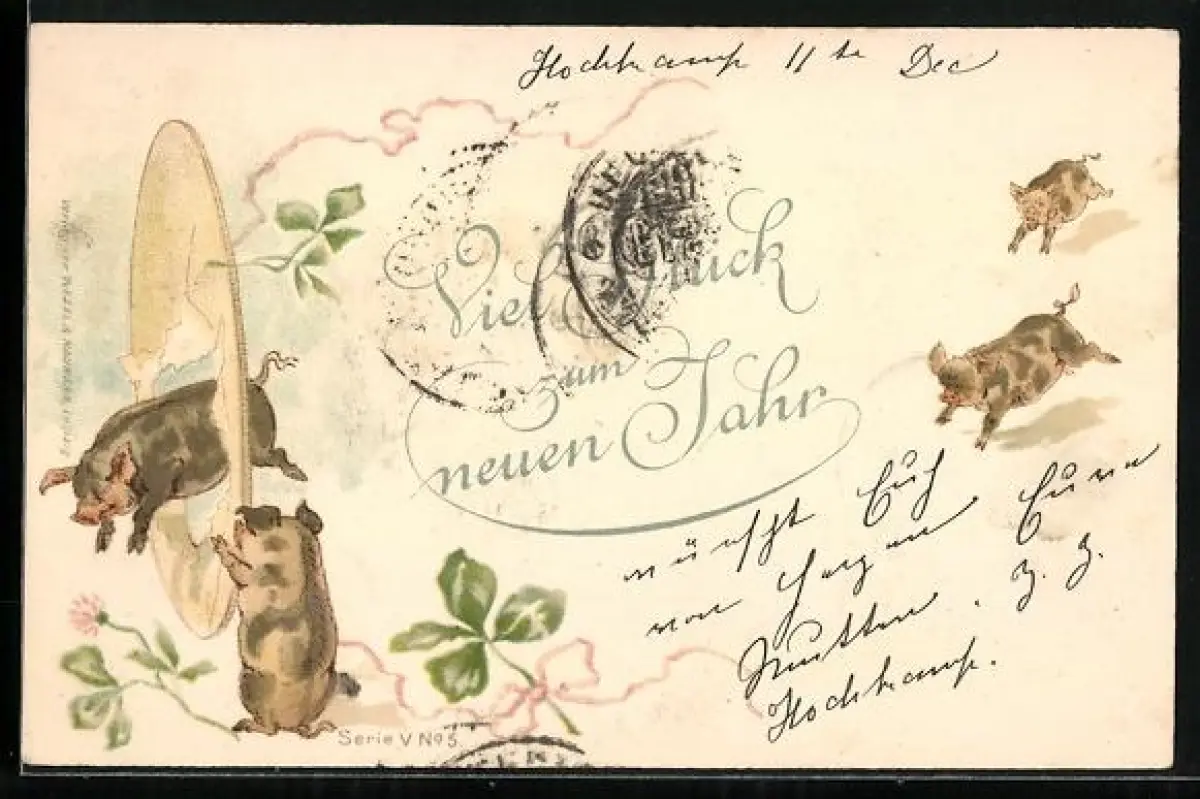 Hochkamp 11 te Dec
Viel Glück
zum
neuen Jahr
wünscht Euch
von Herzen Eure
Mutter. z. Z.
Hochkamp.
Serie V No 5.